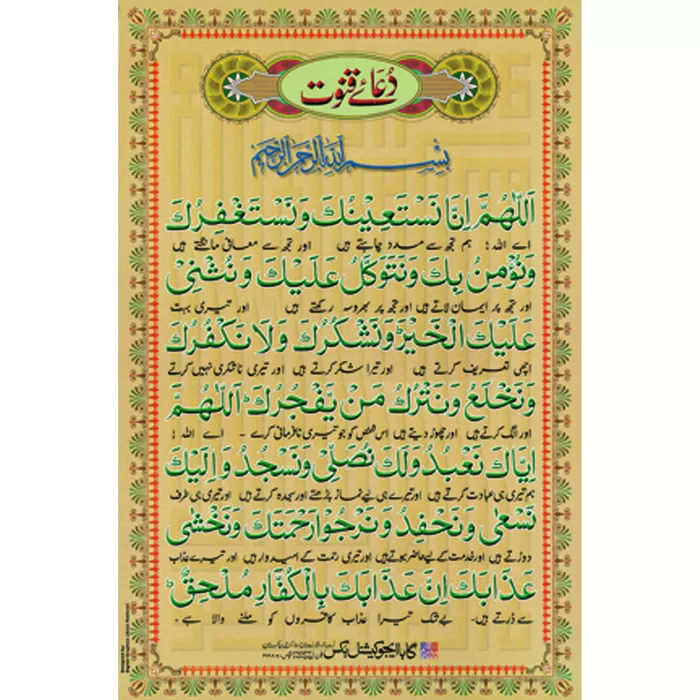 دُعائے قنوت
بِسْمِ اللهِ الرَّحْمٰنِ الرَّحِيْمِ
اَللّٰهُمَّ اِنَّا نَسْتَعِيْنُكَ وَنَسْتَغْفِرُكَ
اے اللہ! ہم تجھ سے مدد چاہتے ہیں اور تجھ سے معافی مانگتے ہیں
وَنُؤْمِنُ بِكَ وَنَتَوَكَّلُ عَلَيْكَ وَنُثْنِىْ
اور تجھ پر ایمان لاتے ہیں اور تجھ پر بھروسہ رکھتے ہیں اور تیری بہت
عَلَيْكَ الْخَيْرَ وَنَشْكُرُكَ وَلَا نَكْفُرُكَ
اچھی تعریف کرتے ہیں اور تیرا شکر کرتے ہیں اور تیری ناشکری نہیں کرتے
وَنَخْلَعُ وَنَتْرُكُ مَنْ يَّفْجُرُكَ ؕ اَللّٰهُمَّ
اور الگ کرتے ہیں اور چھوڑ دیتے ہیں اس شخص کو جو تیری نافرمانی کرے۔ اے اللہ!
اِيَّاكَ نَعْبُدُ وَلَكَ نُصَلِّىْ وَنَسْجُدُ وَاِلَيْكَ
ہم تیری ہی عبادت کرتے ہیں اور تیرے ہی لیے نماز پڑھتے اور سجدہ کرتے ہیں اور تیری ہی طرف
نَسْعٰى وَنَحْفِدُ وَنَرْجُوْا رَحْمَتَكَ وَنَخْشٰى
دوڑتے ہیں اور خدمت کے لیے حاضر ہوتے ہیں اور تیری رحمت کے امیدوار ہیں اور تیرے عذاب
عَذَابَكَ اِنَّ عَذَابَكَ بِالْكُفَّارِ مُلْحِقٌ ؕ
سے ڈرتے ہیں۔ بے شک تیرا عذاب کافروں کو ملنے والا ہے۔
کابا ایجوکیشنل بکس